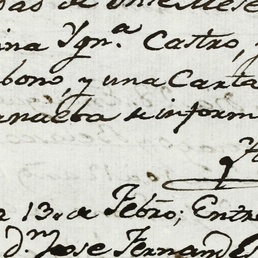 de
ina Ygn.ª Castro, y
bono, y una Carta
se inform
a 13. de Febro; Entre
d.n Jose Fernandes